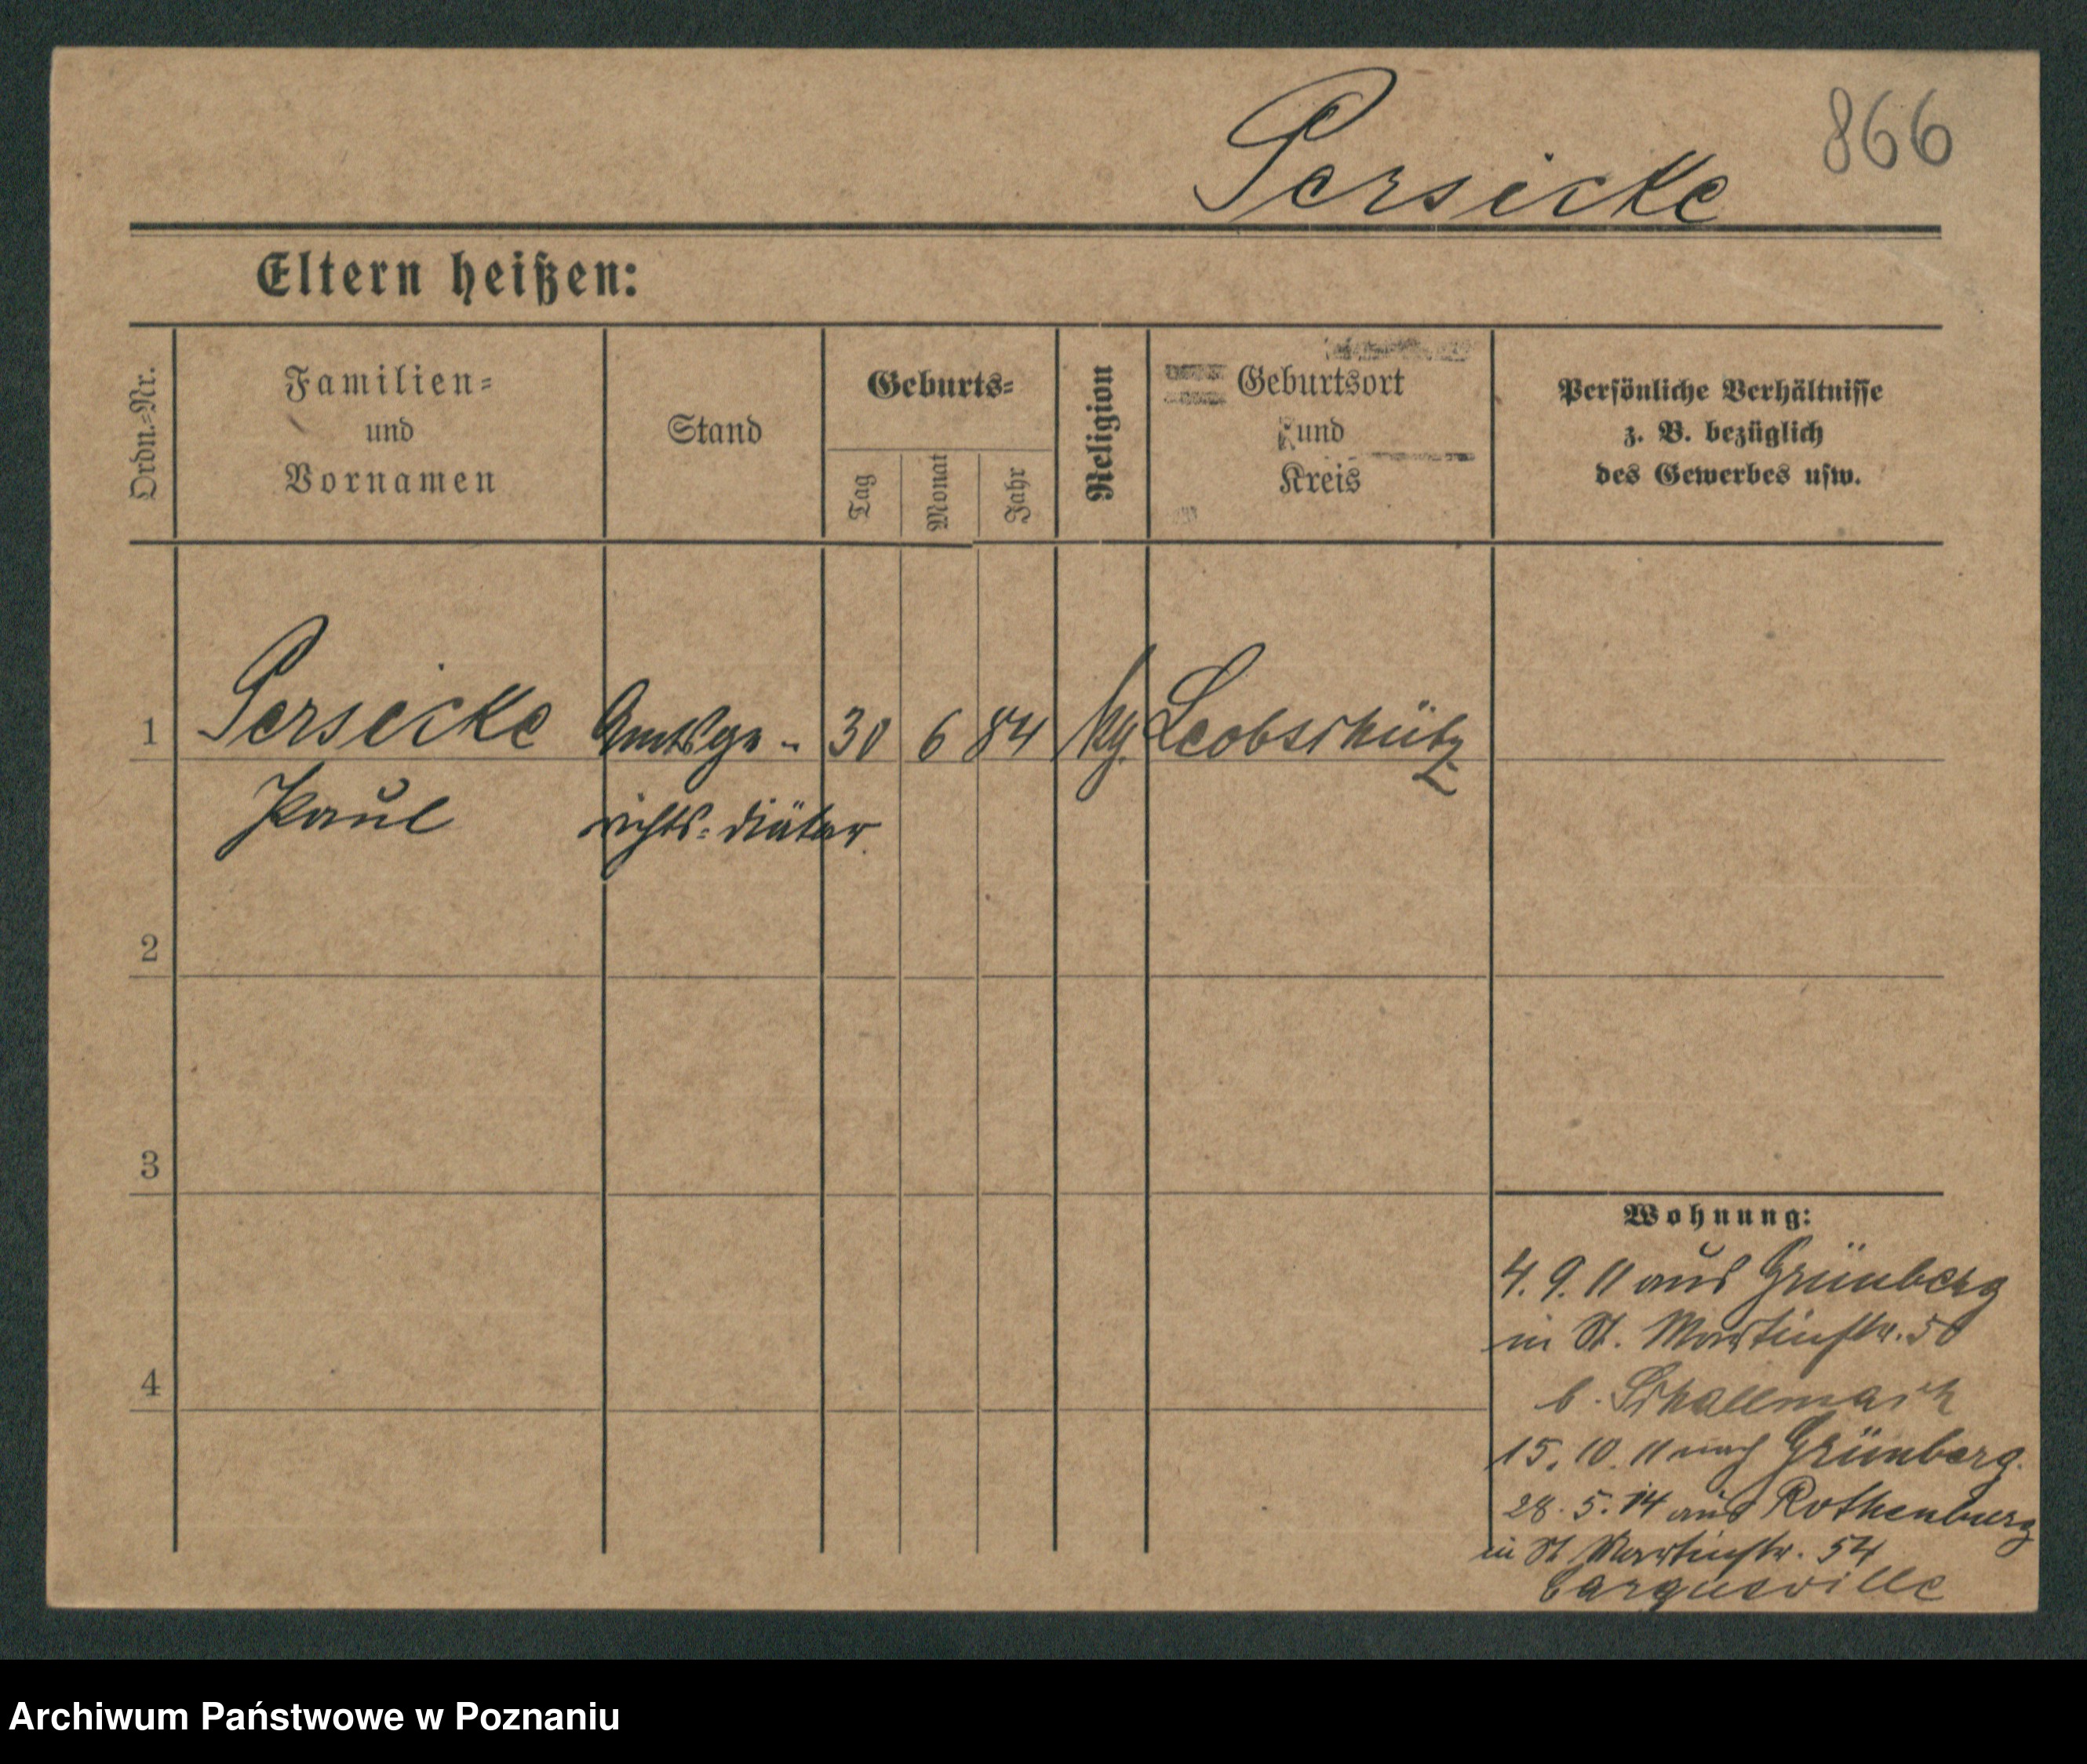 866
Persicke
Eltern heißen:
Ordn.=Nr.
Familien=
und
Vornamen
Stand
Geburts=
Tag
Monat
Jahr
Religion
Geburtsort
und
Kreis
Persönliche Verhältnisse
z. B. bezüglich
des Gewerbes usw.
1 Persicke Amtsge- 30 6 84 Leobschütz
Paul richts=diätar
2
3
4
Wohnung:
4. 9. 11 aus Grünberg
in St. Martinstr. 50
b. Schallmach
15. 10. 11 nach Grünberg.
28. 5. 14 aus Rothenburg
in St Martinstr. 54
Archiwum Państwowe w Poznaniu